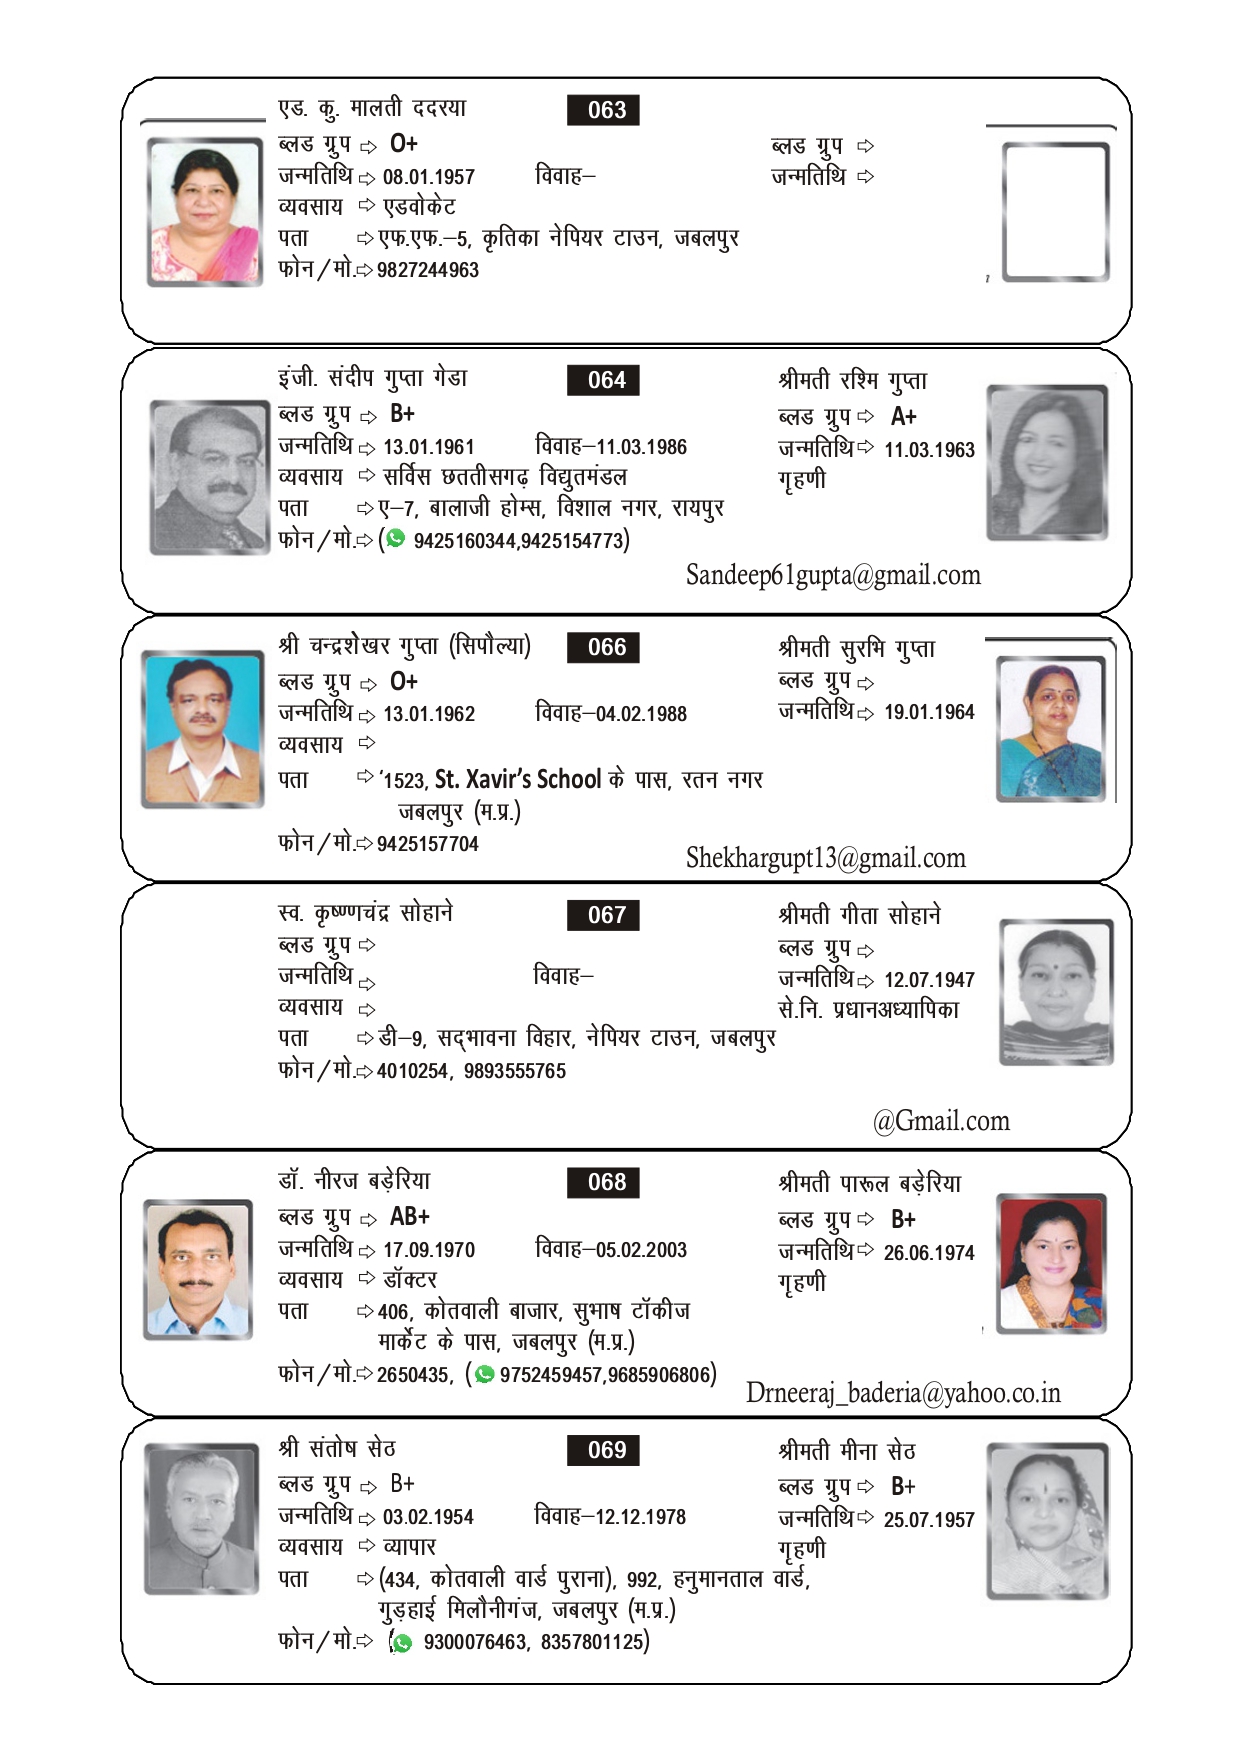 एड. कु. मालती ददरया 063
ब्लड ग्रुप ⇨ O+ ब्लड ग्रुप ⇨
जन्मतिथि ⇨ 08.01.1957 विवाह– जन्मतिथि ⇨
व्यवसाय ⇨ एडवोकेट
पता ⇨ एफ.एफ.–5, कृतिका नेपियर टाउन, जबलपुर
फोन/मो.⇨ 9827244963
इंजी. संदीप गुप्ता गेडा 064 श्रीमती रश्मि गुप्ता
ब्लड ग्रुप ⇨ B+ ब्लड ग्रुप ⇨ A+
जन्मतिथि ⇨ 13.01.1961 विवाह–11.03.1986 जन्मतिथि ⇨ 11.03.1963
व्यवसाय ⇨ सर्विस छततीसगढ़ विद्युतमंडल गृहणी
पता ⇨ ए–7, बालाजी होम्स, विशाल नगर, रायपुर
फोन/मो.⇨ ( 9425160344,9425154773)
Sandeep61gupta@gmail.com
श्री चन्द्रशेखर गुप्ता (सिपौल्या) 066 श्रीमती सुरभि गुप्ता
ब्लड ग्रुप ⇨ O+ ब्लड ग्रुप ⇨
जन्मतिथि ⇨ 13.01.1962 विवाह–04.02.1988 जन्मतिथि ⇨ 19.01.1964
व्यवसाय ⇨
पता ⇨ '1523, St. Xavir's School के पास, रतन नगर
जबलपुर (म.प्र.)
फोन/मो.⇨ 9425157704
Shekhargupt13@gmail.com
स्व. कृष्णचंद्र सोहाने 067 श्रीमती गीता सोहाने
ब्लड ग्रुप ⇨ ब्लड ग्रुप ⇨
जन्मतिथि ⇨ विवाह– जन्मतिथि ⇨ 12.07.1947
व्यवसाय ⇨ से.नि. प्रधानअध्यापिका
पता ⇨ डी–9, सद्‌भावना विहार, नेपियर टाउन, जबलपुर
फोन/मो.⇨ 4010254, 9893555765
@Gmail.com
डॉ. नीरज बड़ेरिया 068 श्रीमती पारूल बड़ेरिया
ब्लड ग्रुप ⇨ AB+ ब्लड ग्रुप ⇨ B+
जन्मतिथि ⇨ 17.09.1970 विवाह–05.02.2003 जन्मतिथि ⇨ 26.06.1974
व्यवसाय ⇨ डॉक्टर गृहणी
पता ⇨ 406, कोतवाली बाजार, सुभाष टॉकीज
मार्केट के पास, जबलपुर (म.प्र.)
फोन/मो.⇨ 2650435, ( 9752459457,9685906806)
Drneeraj_baderia@yahoo.co.in
श्री संतोष सेठ 069 श्रीमती मीना सेठ
ब्लड ग्रुप ⇨ B+ ब्लड ग्रुप ⇨ B+
जन्मतिथि ⇨ 03.02.1954 विवाह–12.12.1978 जन्मतिथि ⇨ 25.07.1957
व्यवसाय ⇨ व्यापार गृहणी
पता ⇨ (434, कोतवाली वार्ड पुराना), 992, हनुमानताल वार्ड,
गुड़हाई मिलौनीगंज, जबलपुर (म.प्र.)
फोन/मो.⇨ ( 9300076463, 8357801125)